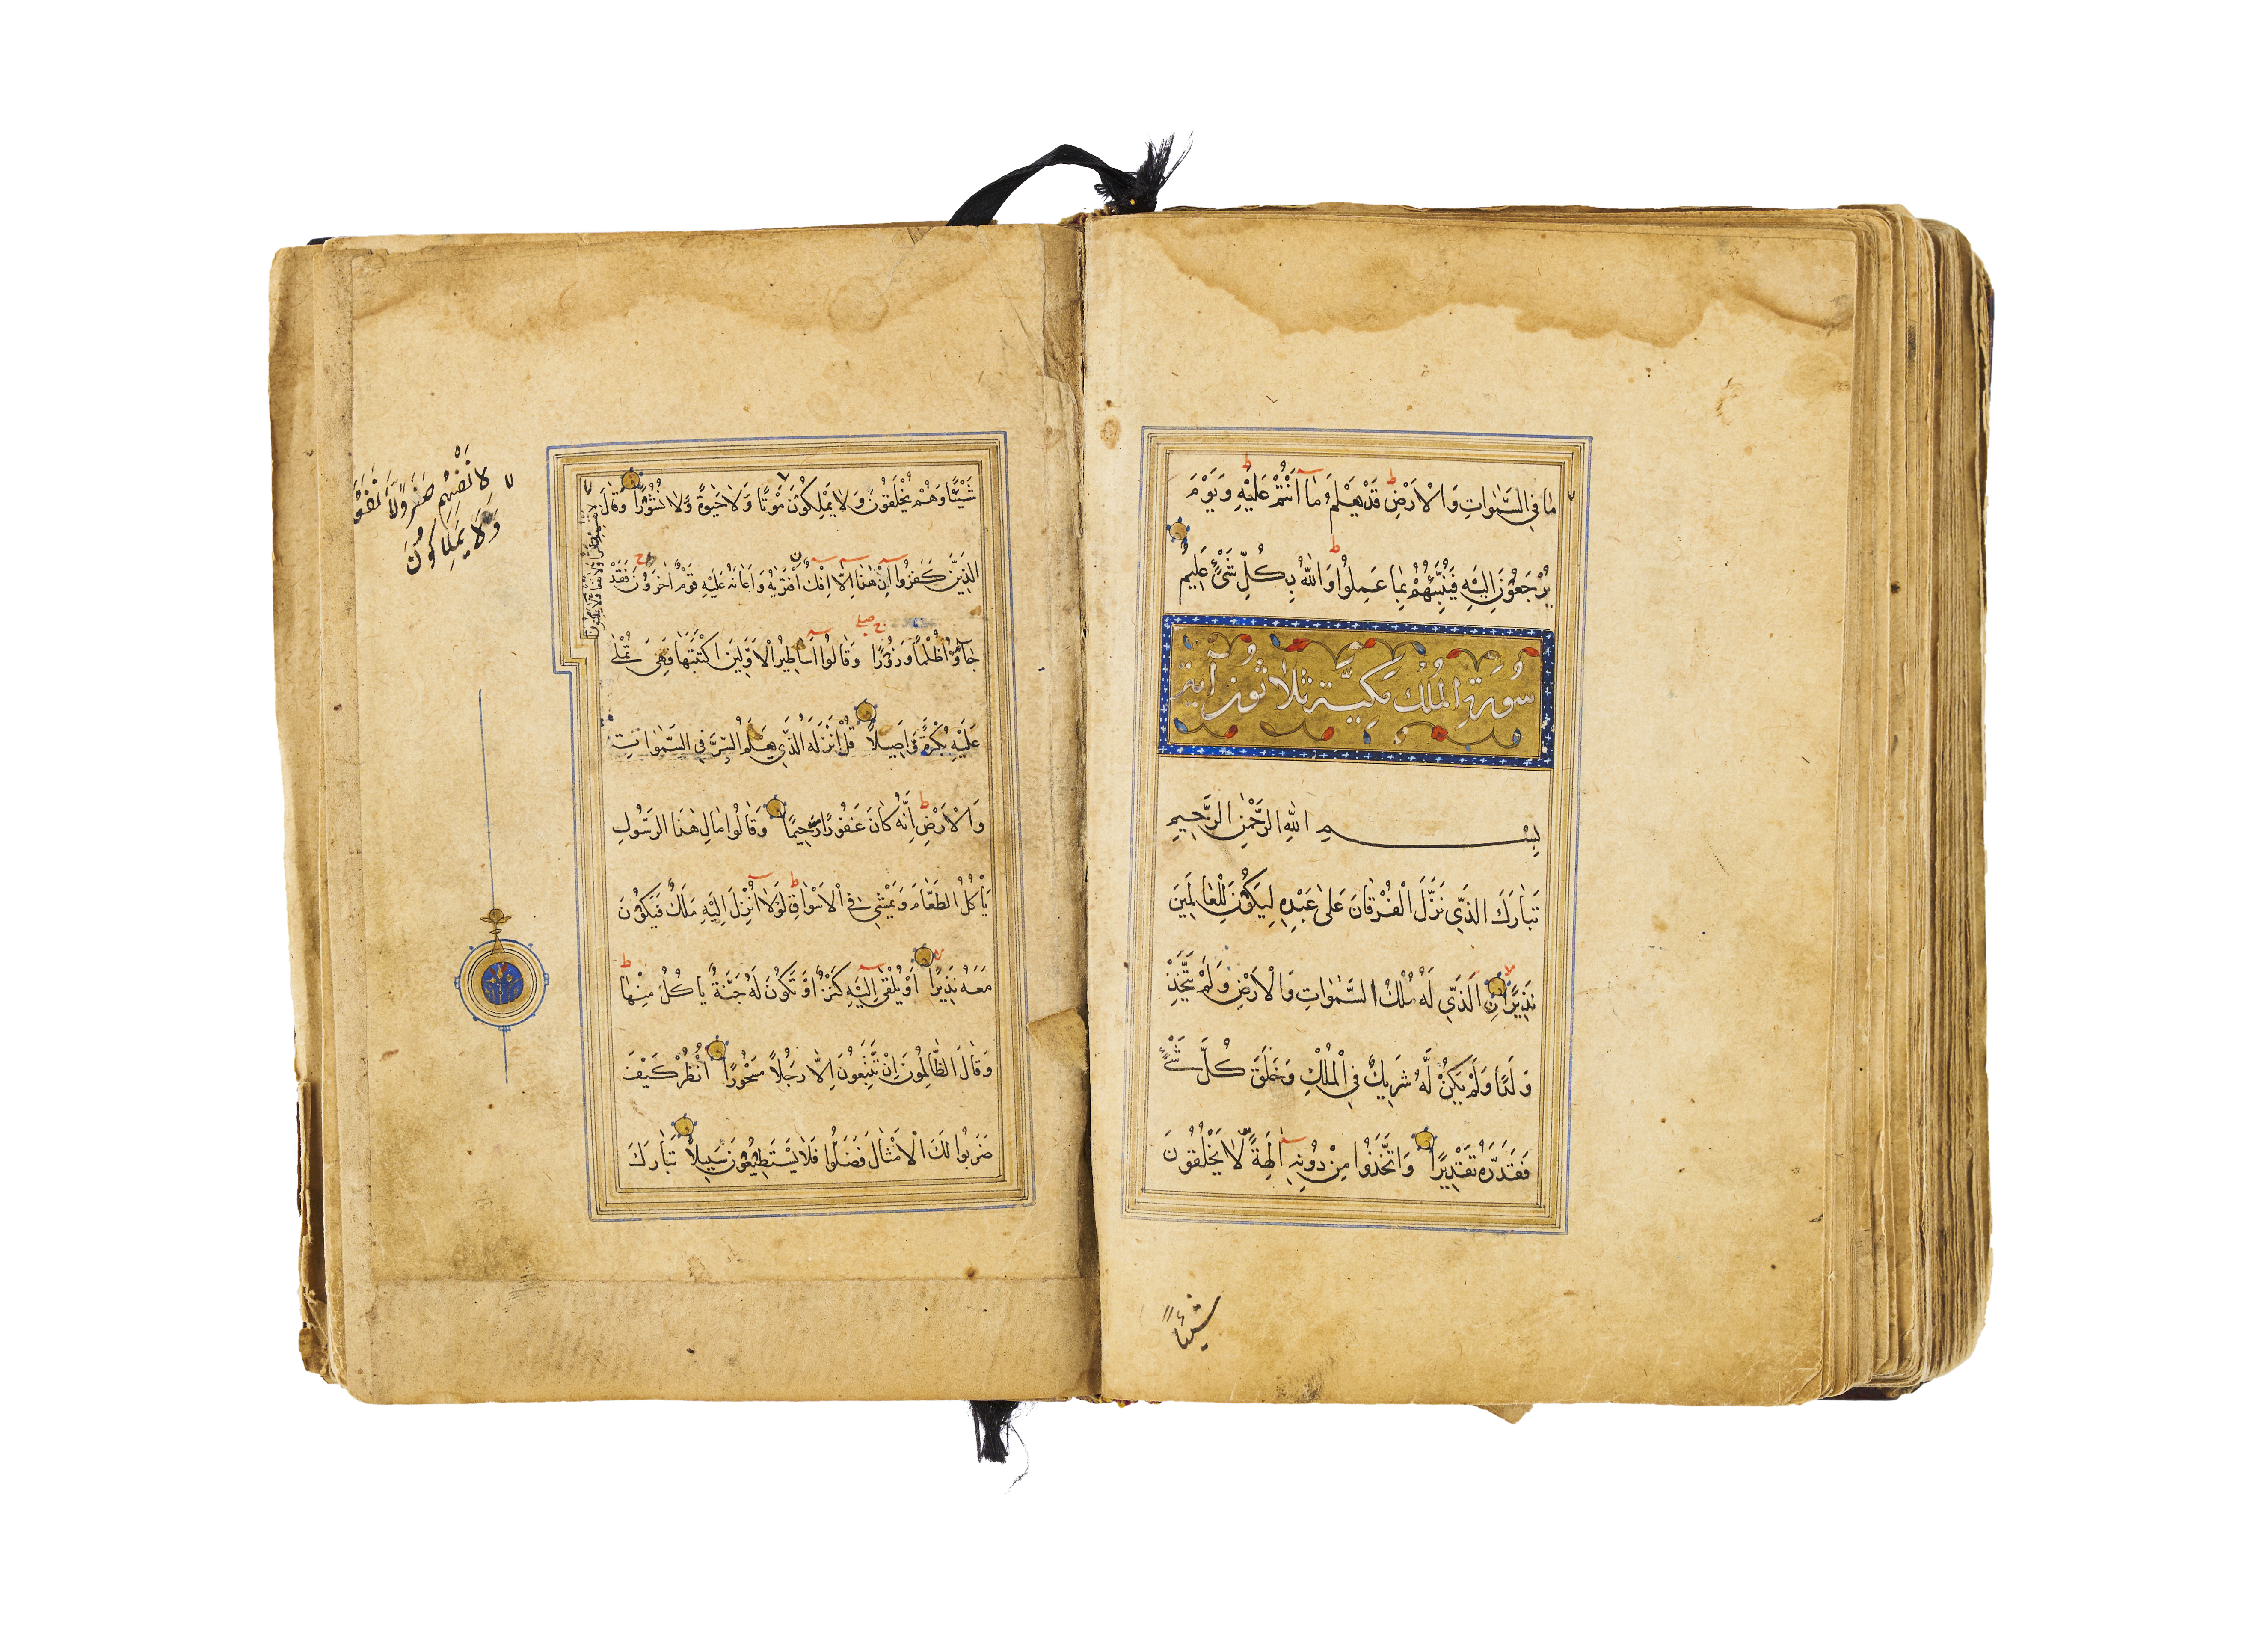 مَا فِي السَّمٰوَاتِ وَالْاَرْضِ قَدْ يَعْلَمُ مَا اَنْتُمْ عَلَيْهِ وَيَوْمَ
يُرْجَعُونَ اِلَيْهِ فَيُنَبِّئُهُمْ بِمَا عَمِلُوا وَاللهُ بِكُلِّ شَيْءٍ عَلِيمٌ
سُورَةِ الْمُلْكِ مَكِيَّة ثلاثون آية
بِسْمِ اللهِ الرَّحْمٰنِ الرَّحِيمِ
تَبَارَكَ الَّذِي نَزَّلَ الْفُرْقَانَ عَلٰى عَبْدِهِ لِيَكُونَ لِلْعَالَمِينَ
نَذِيرًا نِ الَّذِي لَهُ مُلْكُ السَّمٰوَاتِ وَالْاَرْضِ وَلَمْ يَتَّخِذْ
وَلَدًا وَلَمْ يَكُنْ لَهُ شَرِيكٌ فِي الْمُلْكِ وَخَلَقَ كُلَّ شَيْءٍ
فَقَدَّرَهُ تَقْدِيرًا وَاتَّخَذُوا مِنْ دُونِهِ اٰلِهَةً لَا يَخْلُقُونَ
شَيْئًا
شَيْئًا وَهُمْ يُخْلَقُونَ وَلَا يَمْلِكُونَ مَوْتًا وَلَا حَيٰوةً وَلَا نُشُورًا وَقَالَ
الَّذِينَ كَفَرُوا اِنْ هٰذَا اِلَّا اِفْكٌ افْتَرٰيهُ وَاَعَانَهُ عَلَيْهِ قَوْمٌ اٰخَرُونَ فَقَدْ
جَاؤُا ظُلْمًا وَزُورًا وَقَالُوا اَسَاطِيرُ الْاَوَّلِينَ اكْتَتَبَهَا فَهِيَ تُمْلٰى
عَلَيْهِ بُكْرَةً وَاَصِيلًا قُلْ اَنْزَلَهُ الَّذِي يَعْلَمُ السِّرَّ فِي السَّمٰوَاتِ
وَالْاَرْضِ اِنَّهُ كَانَ غَفُورًا رَحِيمًا وَقَالُوا مَالِ هٰذَا الرَّسُولِ
يَاْكُلُ الطَّعَامَ وَيَمْشِي فِي الْاَسْوَاقِ لَوْلَا اُنْزِلَ اِلَيْهِ مَلَكٌ فَيَكُونَ
مَعَهُ نَذِيرًا اَوْ يُلْقٰى اِلَيْهِ كَنْزٌ اَوْ تَكُونُ لَهُ جَنَّةٌ يَاكُلُ مِنْهَا
وَقَالَ الظَّالِمُونَ اِنْ تَتَّبِعُونَ اِلَّا رَجُلًا مَسْحُورًا اُنْظُرْ كَيْفَ
ضَرَبُوا لَكَ الْاَمْثَالَ فَضَلُّوا فَلَا يَسْتَطِيعُونَ سَبِيلًا تَبَارَكَ
لانفسهم ضرا ولا نفعا ولا يملكون
لِاَنْفُسِهِمْ ضَرًّا وَلَا نَفْعًا
وَلَا يَمْلِكُونَ